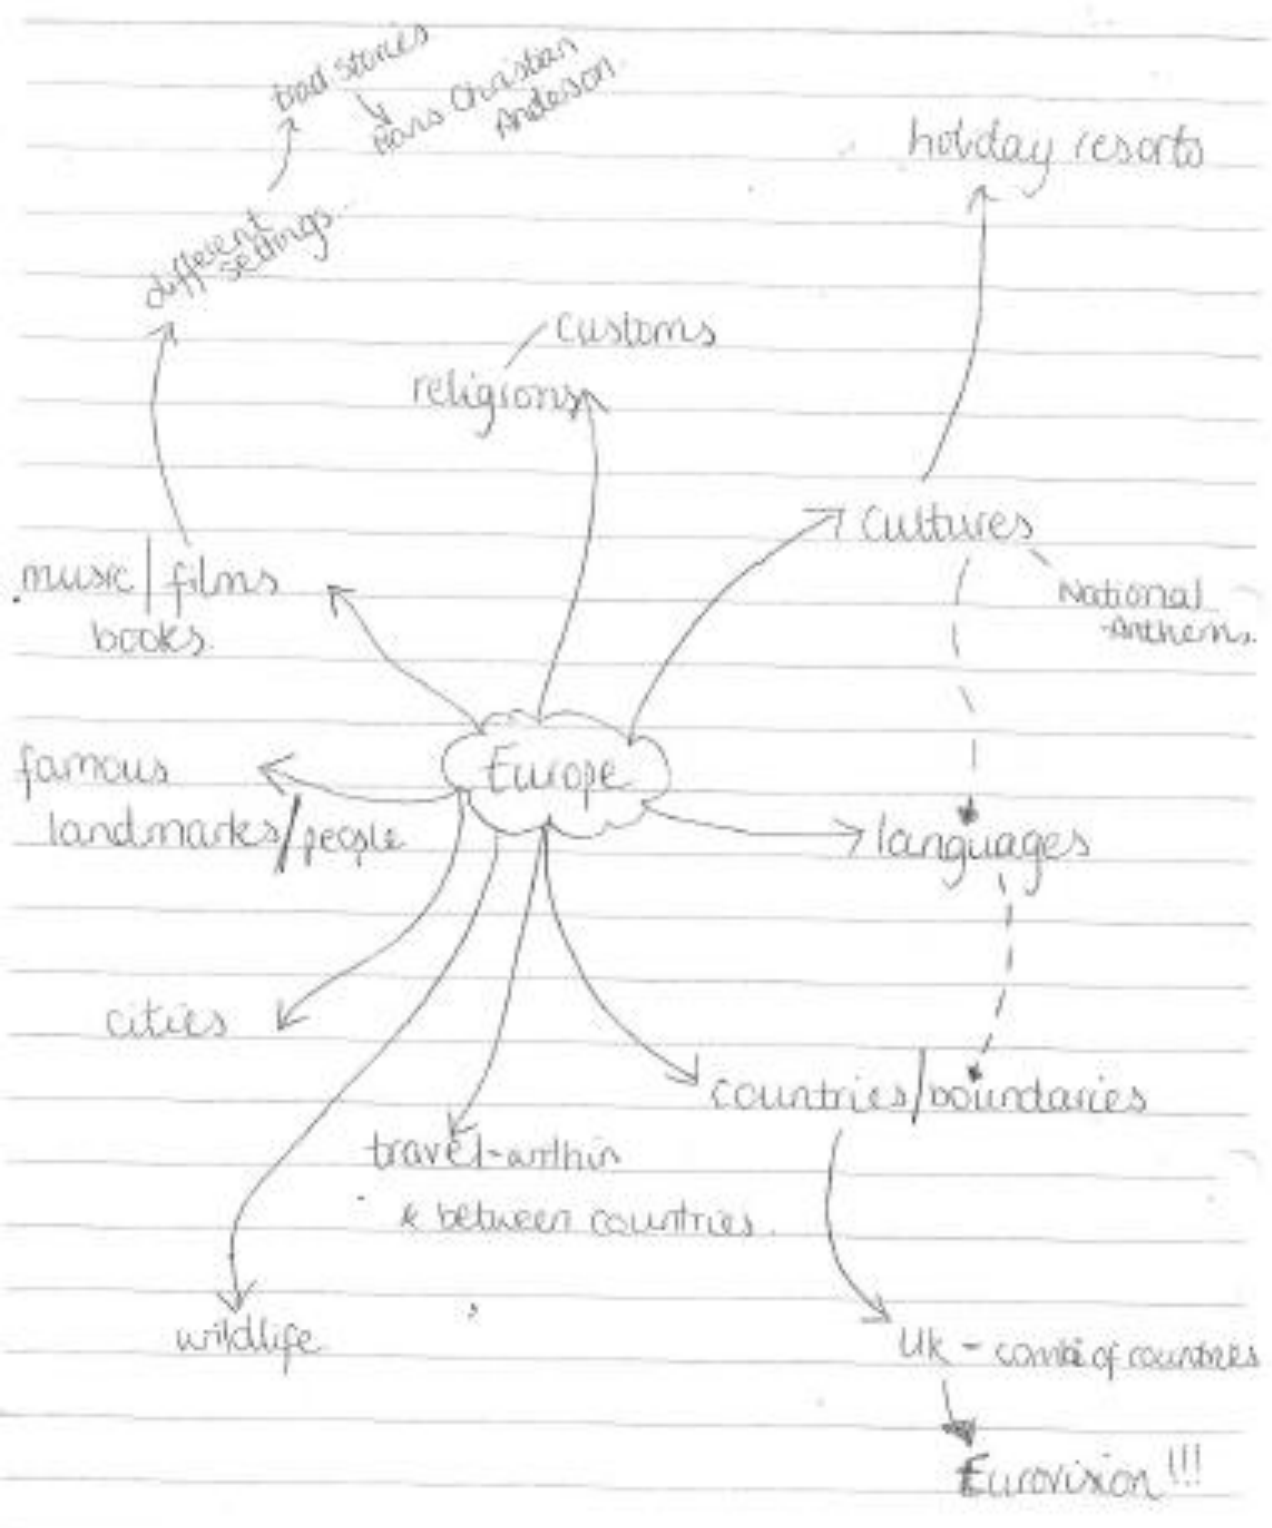 trad stories
Hans Christian
Anderson.
holiday resorts
different
settings...
customs
religions
cultures
National
Anthems.
music/films
books.
Europe
famous
landmarks/people
languages
cities
countries/boundaries
travel-within
& between countries.
wildlife
UK - combi of countries
Eurovision!!!